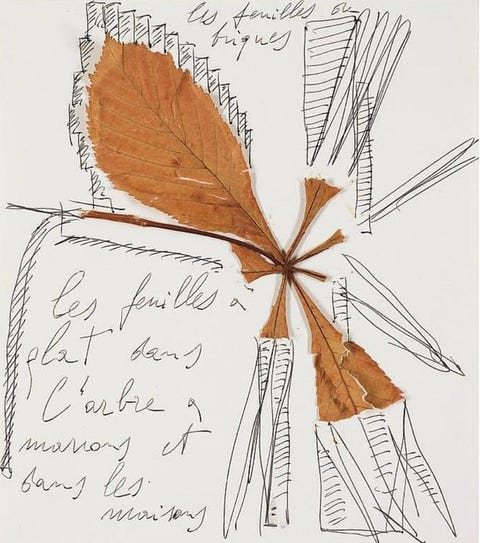 les feuilles
briques
les feuilles à
plat dans
l'arbre a
marrons et
dans les
maisons